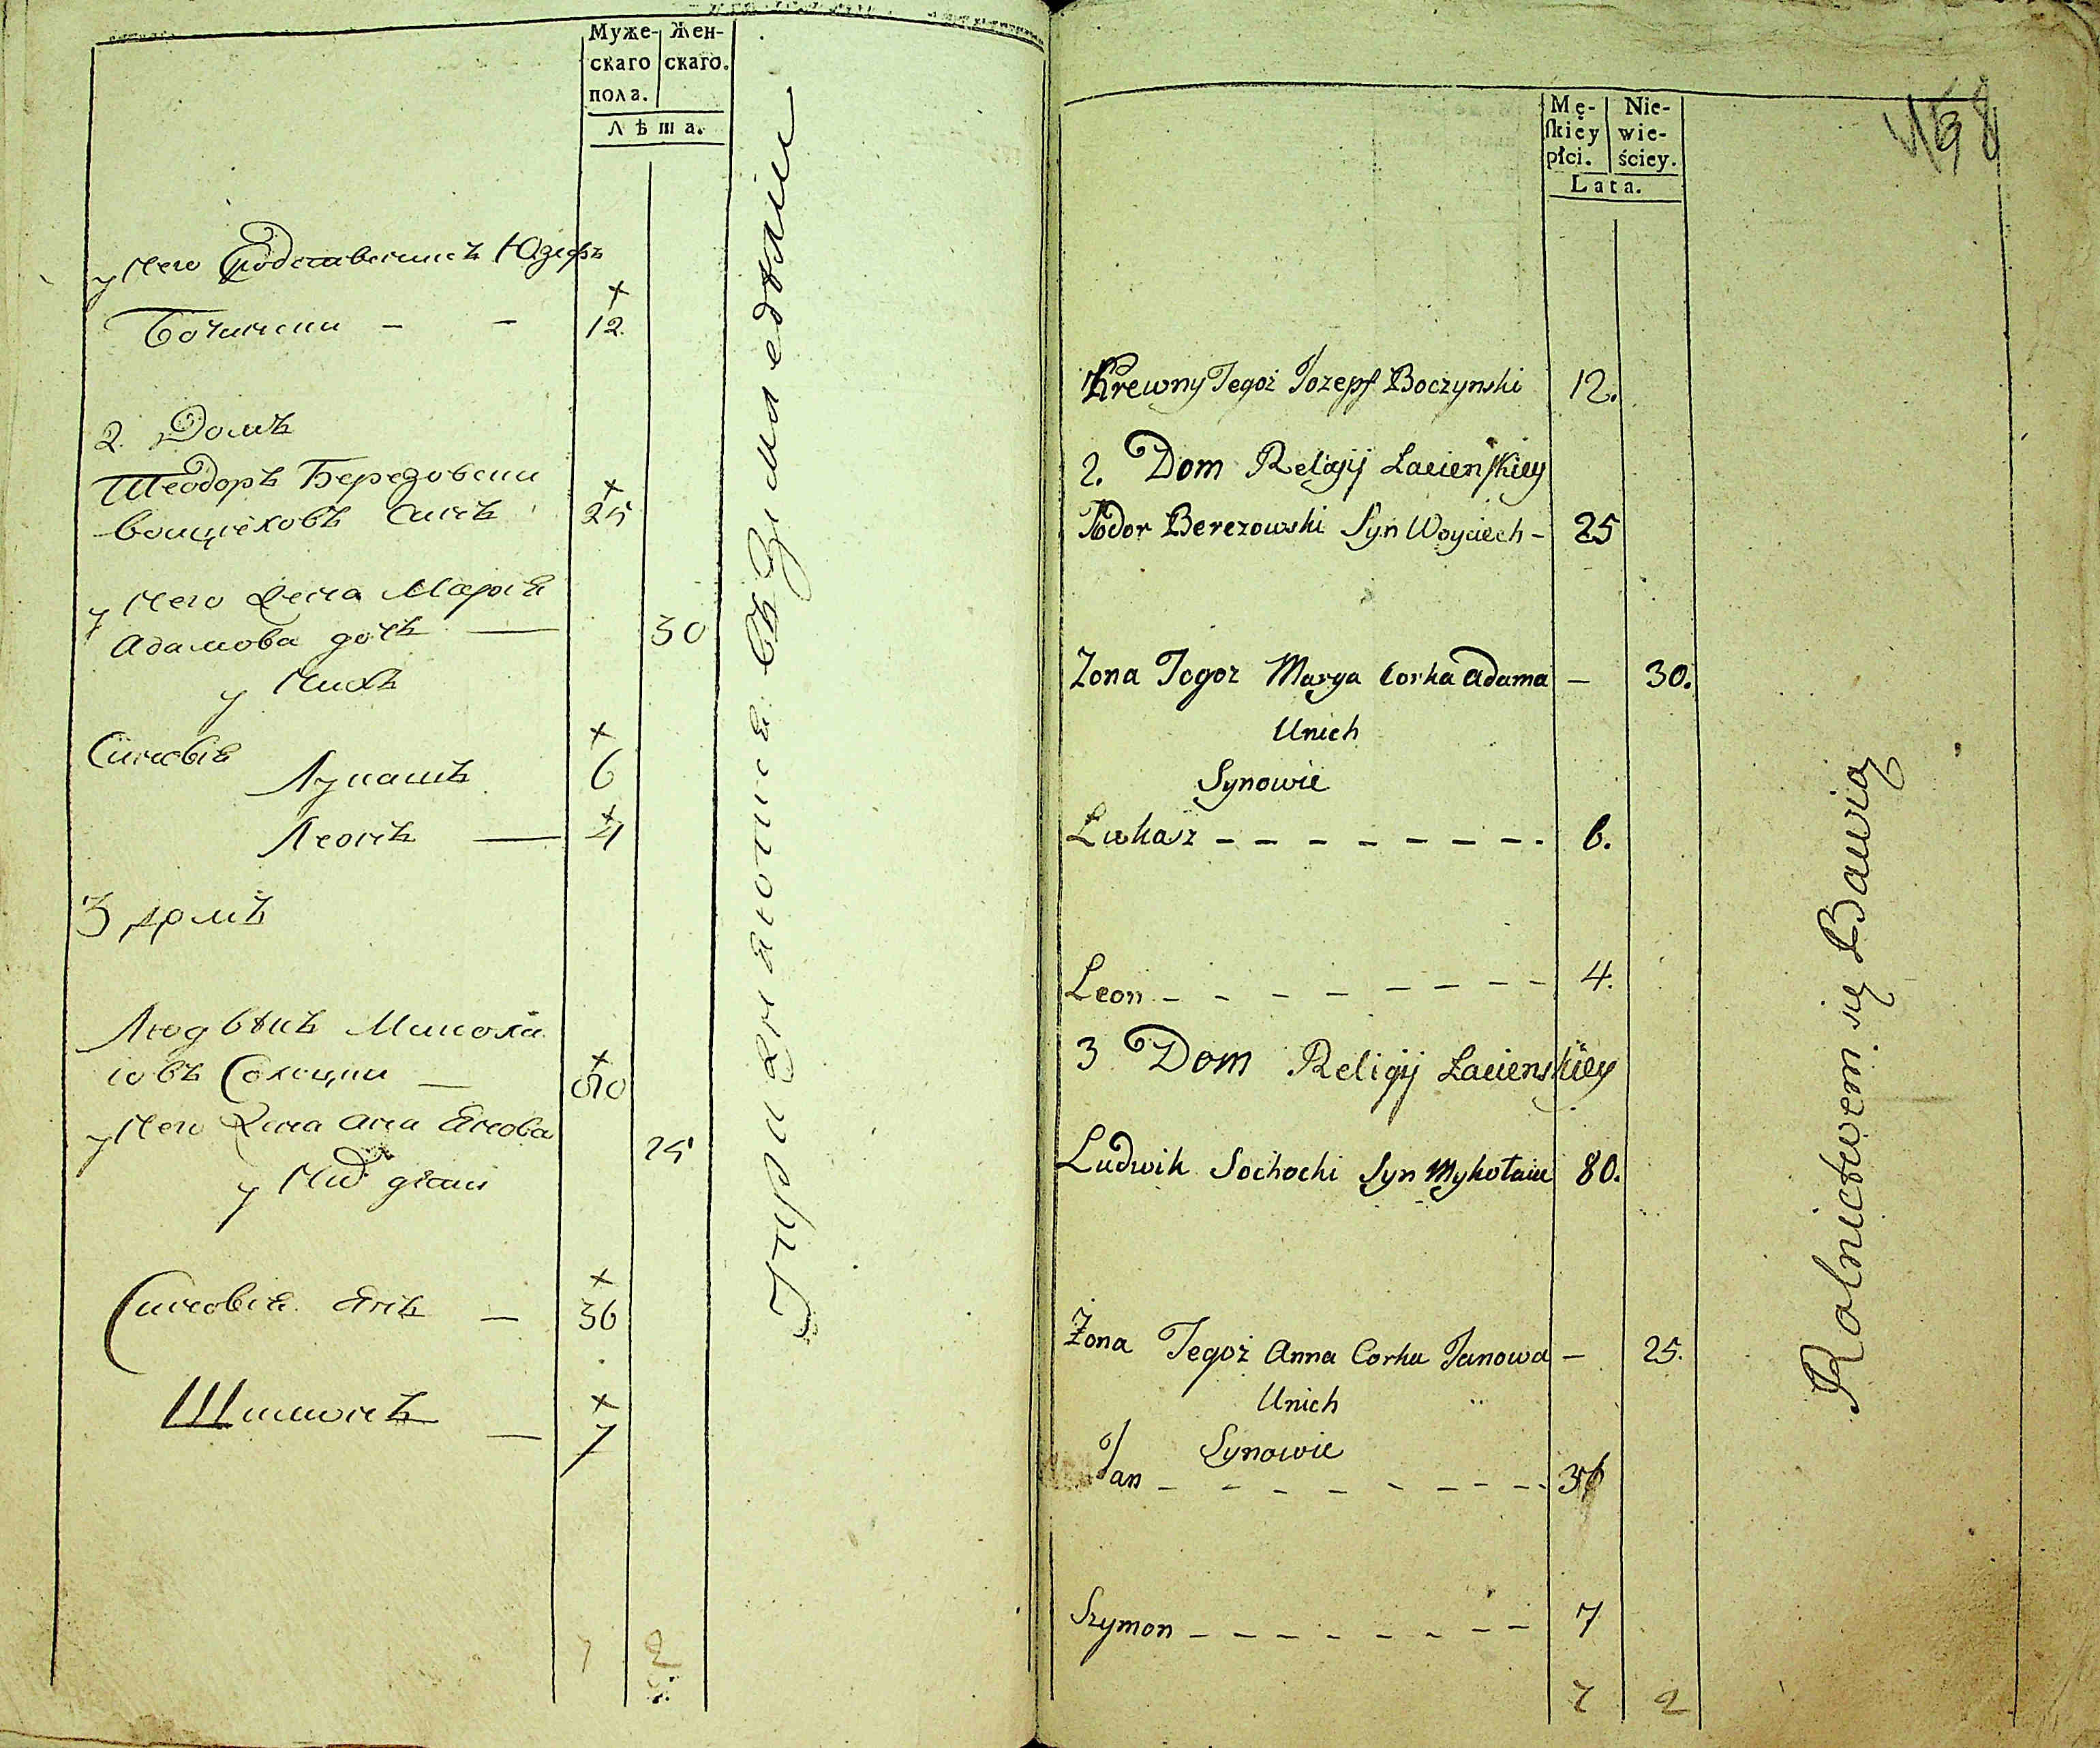 Муже-
скаго
пола.
Жен-
скаго.
Лѣта.
у Него Сродственникъ Юзефъ
Бочински - - 12
2. Домъ
Теодоръ Березовски
Войцѣховъ Синъ 25
у Него Жена Марія
Адамова дочь — 30
у Нихъ
Синовія
Лукашъ 6
Леонъ — 4
3 домъ
Людвикъ Миколаіовъ
Сохоцки — 80
у Него Жена Ана Янова 25
у Них дѣти
Синовія Янъ — 36
Шимонъ — 7
7 2
въ земледѣліи
Mę-
skiey
płci.
Nie-
wie-
ściey.
Lata.
Krewny Tegoż Jozepf Boczynski 12.
2. Dom Religij Łacienskiey
Todor Berezowski Syn Woyciech - 25
Zona Tegoz Marya Corka Adama - 30.
Unich
Synowie
Lukasz - - - - - - - - 6.
Leon - - - - - - - - 4.
3 Dom Religij Łacienskiey
Ludwik Sochocki Syn Mykołaiu 80.
Żona Tegoż Anna Corka Janowa - 25.
Unich
Synowie
Jan - - - - - - - - 36
Szymon - - - - - - - - 7
7 2
Rolnictwem się Bawią